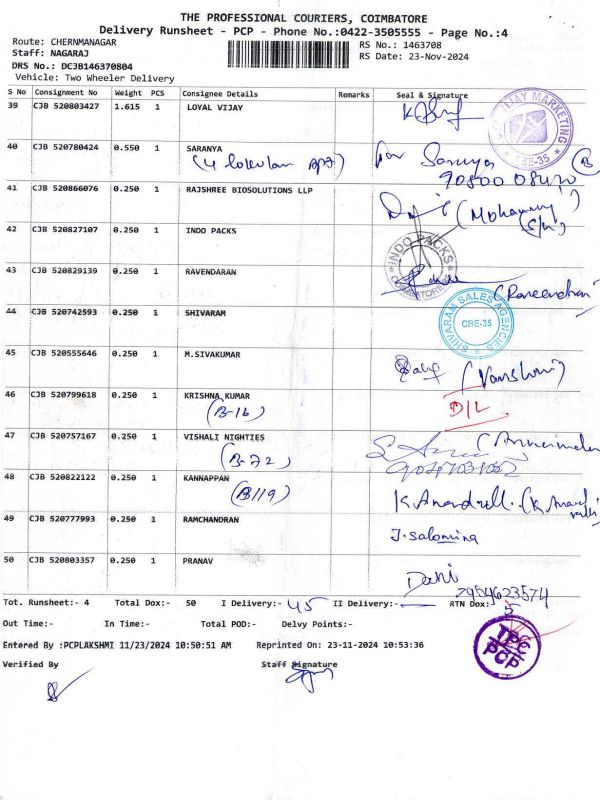 THE PROFESSIONAL COURIERS, COIMBATORE
Delivery Runsheet - PCP - Phone No.:0422-3505555 - Page No.:4
Route: CHERNMANAGAR
Staff: NAGARAJ
DRS No.: DCJB146370804
Vehicle: Two Wheeler Delivery
RS No.: 1463708
RS Date: 23-Nov-2024
S No Consignment No Weight PCS Consignee Details Remarks Seal & Signature
39 CJB 520803427 1.615 1 LOYAL VIJAY
MARKETING
CBE-35
40 CJB 520780424 0.550 1 SARANYA
for Saranya
41 CJB 520866076 0.250 1 RAJSHREE BIOSOLUTIONS LLP
42 CJB 520827107 0.250 1 INDO PACKS
INDO PACKS
43 CJB 520829139 0.250 1 RAVENDARAN
(Raveendran)
44 CJB 520742593 0.250 1 SHIVARAM
SHIVARAM SALES AGENCIES
CBE-35
45 CJB 520555646 0.250 1 M.SIVAKUMAR
46 CJB 520799618 0.250 1 KRISHNA KUMAR
(B-16)
D/L
47 CJB 520757167 0.250 1 VISHALI NIGHTIES
(B-72)
48 CJB 520822122 0.250 1 KANNAPPAN
(B119)
49 CJB 520777993 0.250 1 RAMCHANDRAN
J. Salomina
50 CJB 520803357 0.250 1 PRANAV
7954623574
Tot. Runsheet:- 4 Total Dox:- 50 I Delivery:- 45 II Delivery:- RTN Dox: 5
Out Time:- In Time:- Total POD:- Delvy Points:-
TPC
PCP
Entered By :PCPLAKSHMI 11/23/2024 10:50:51 AM Reprinted On: 23-11-2024 10:53:36
Verified By Staff Signature